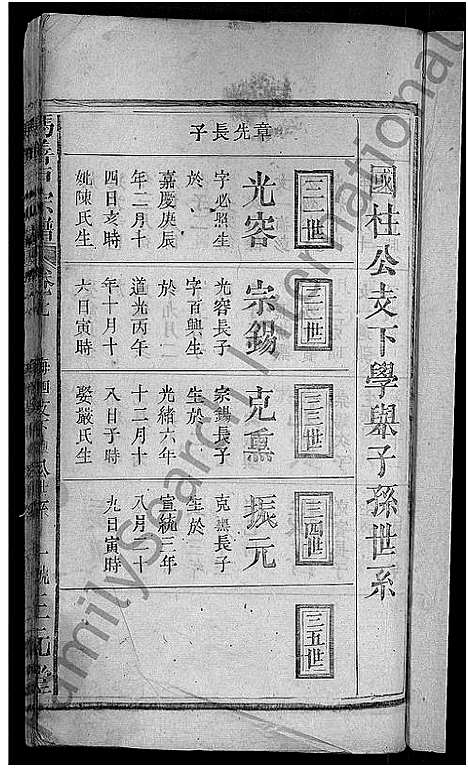 國柱公支下學舉子孫世系
章先長子
三一世
光容
字必照生
於
嘉慶庚辰
年二月十
四日亥時
妣陳氏生
三二世
宗錫
光容長子
字百興生
於
道光丙午
年十月十
六日寅時
三三世
克熏
宗錫長子
生於
光緒六年
十二月十
八日子時
娶嚴氏生
三四世
振元
克熏長子
生於
宣統三年
八月十
九日寅時
三五世
FamilySearch International